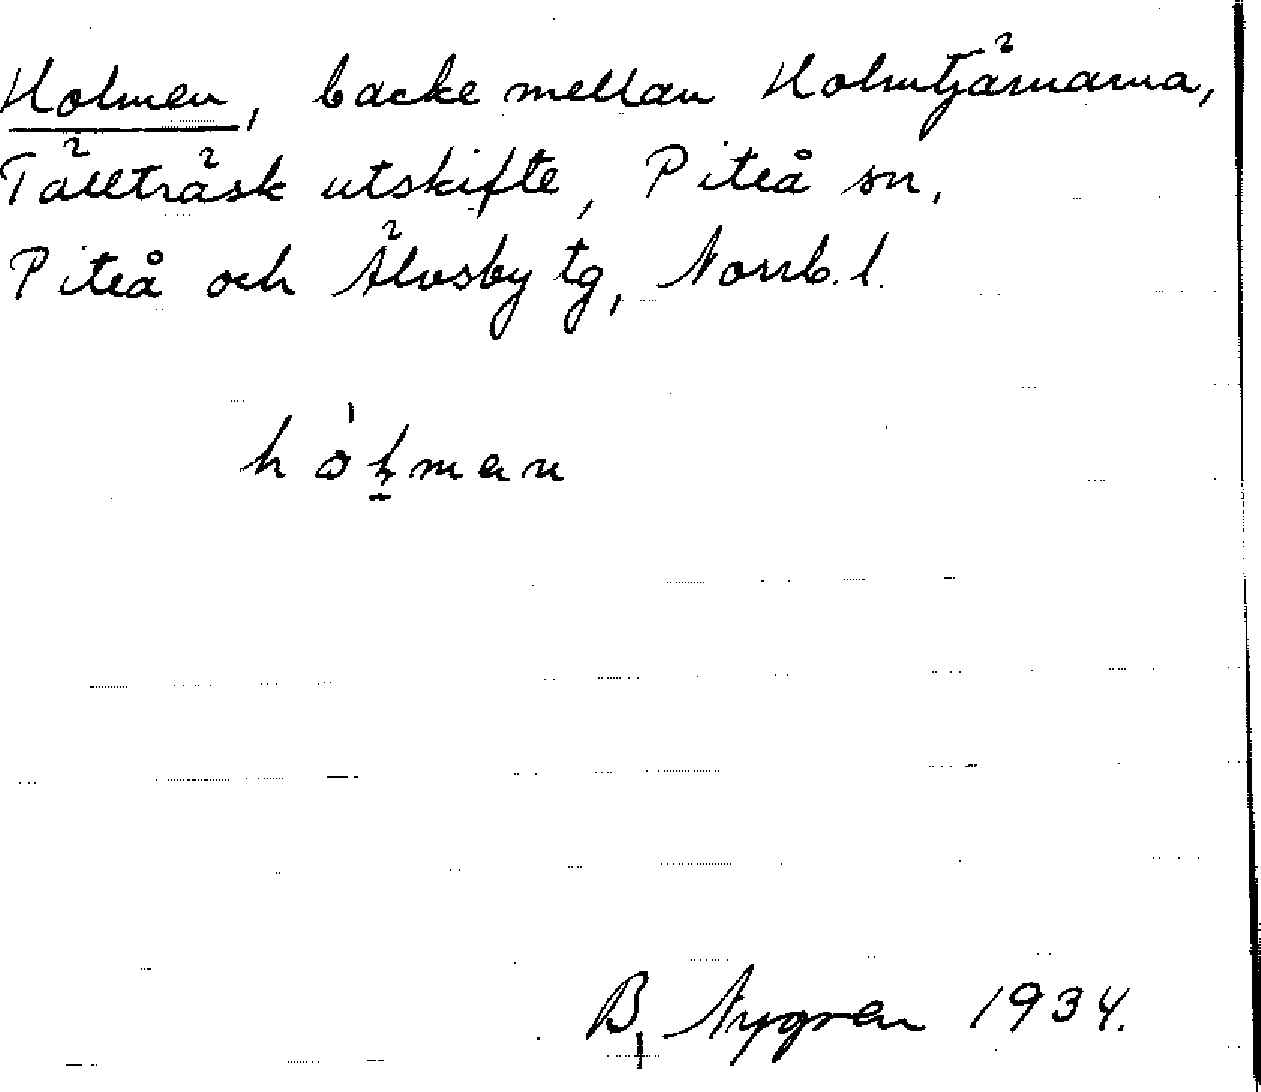 Holmen, backe mellan Holmtjärnarna,
Tällträsk utskifte, Piteå sn,
Piteå och Älvsby tg, Norrb. l.
hólman
B. Nygren 1934.